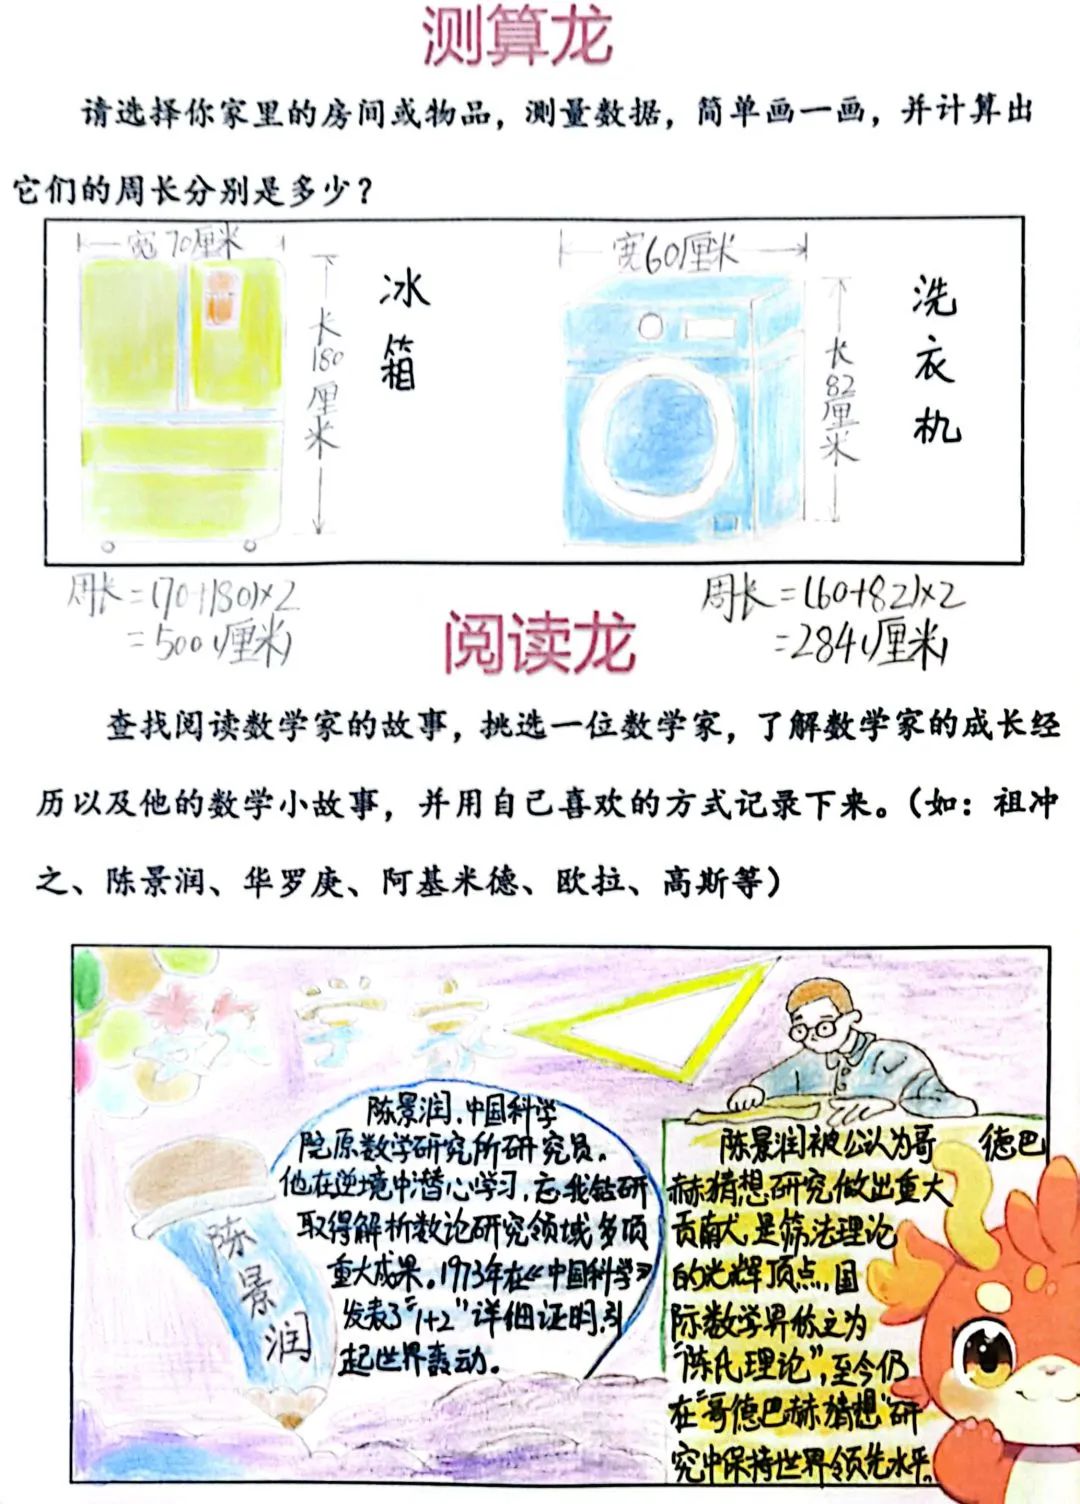 测算龙
请选择你家里的房间或物品，测量数据，简单画一画，并计算出
它们的周长分别是多少？
宽70厘米
长180厘米
冰箱
宽60厘米
长82厘米
洗衣机
周长=(70+180)×2
=500(厘米)
周长=(60+82)×2
=284(厘米)
阅读龙
查找阅读数学家的故事，挑选一位数学家，了解数学家的成长经
历以及他的数学小故事，并用自己喜欢的方式记录下来。（如：祖冲
之、陈景润、华罗庚、阿基米德、欧拉、高斯等）
数学家
陈景润
陈景润，中国科学
院原数学研究所研究员。
他在逆境中潜心学习，忘我钻研
取得解析数论研究领域多项
重大成果。1973年在《中国科学》
发表了“1+2”详细证明，引
起世界轰动。
陈景润被公认为哥德巴
赫猜想研究做出重大
贡献，是筛法理论
的光辉顶点，国
际数学界称之为
“陈氏理论”，至今仍
在“哥德巴赫猜想”研
究中保持世界领先水平。